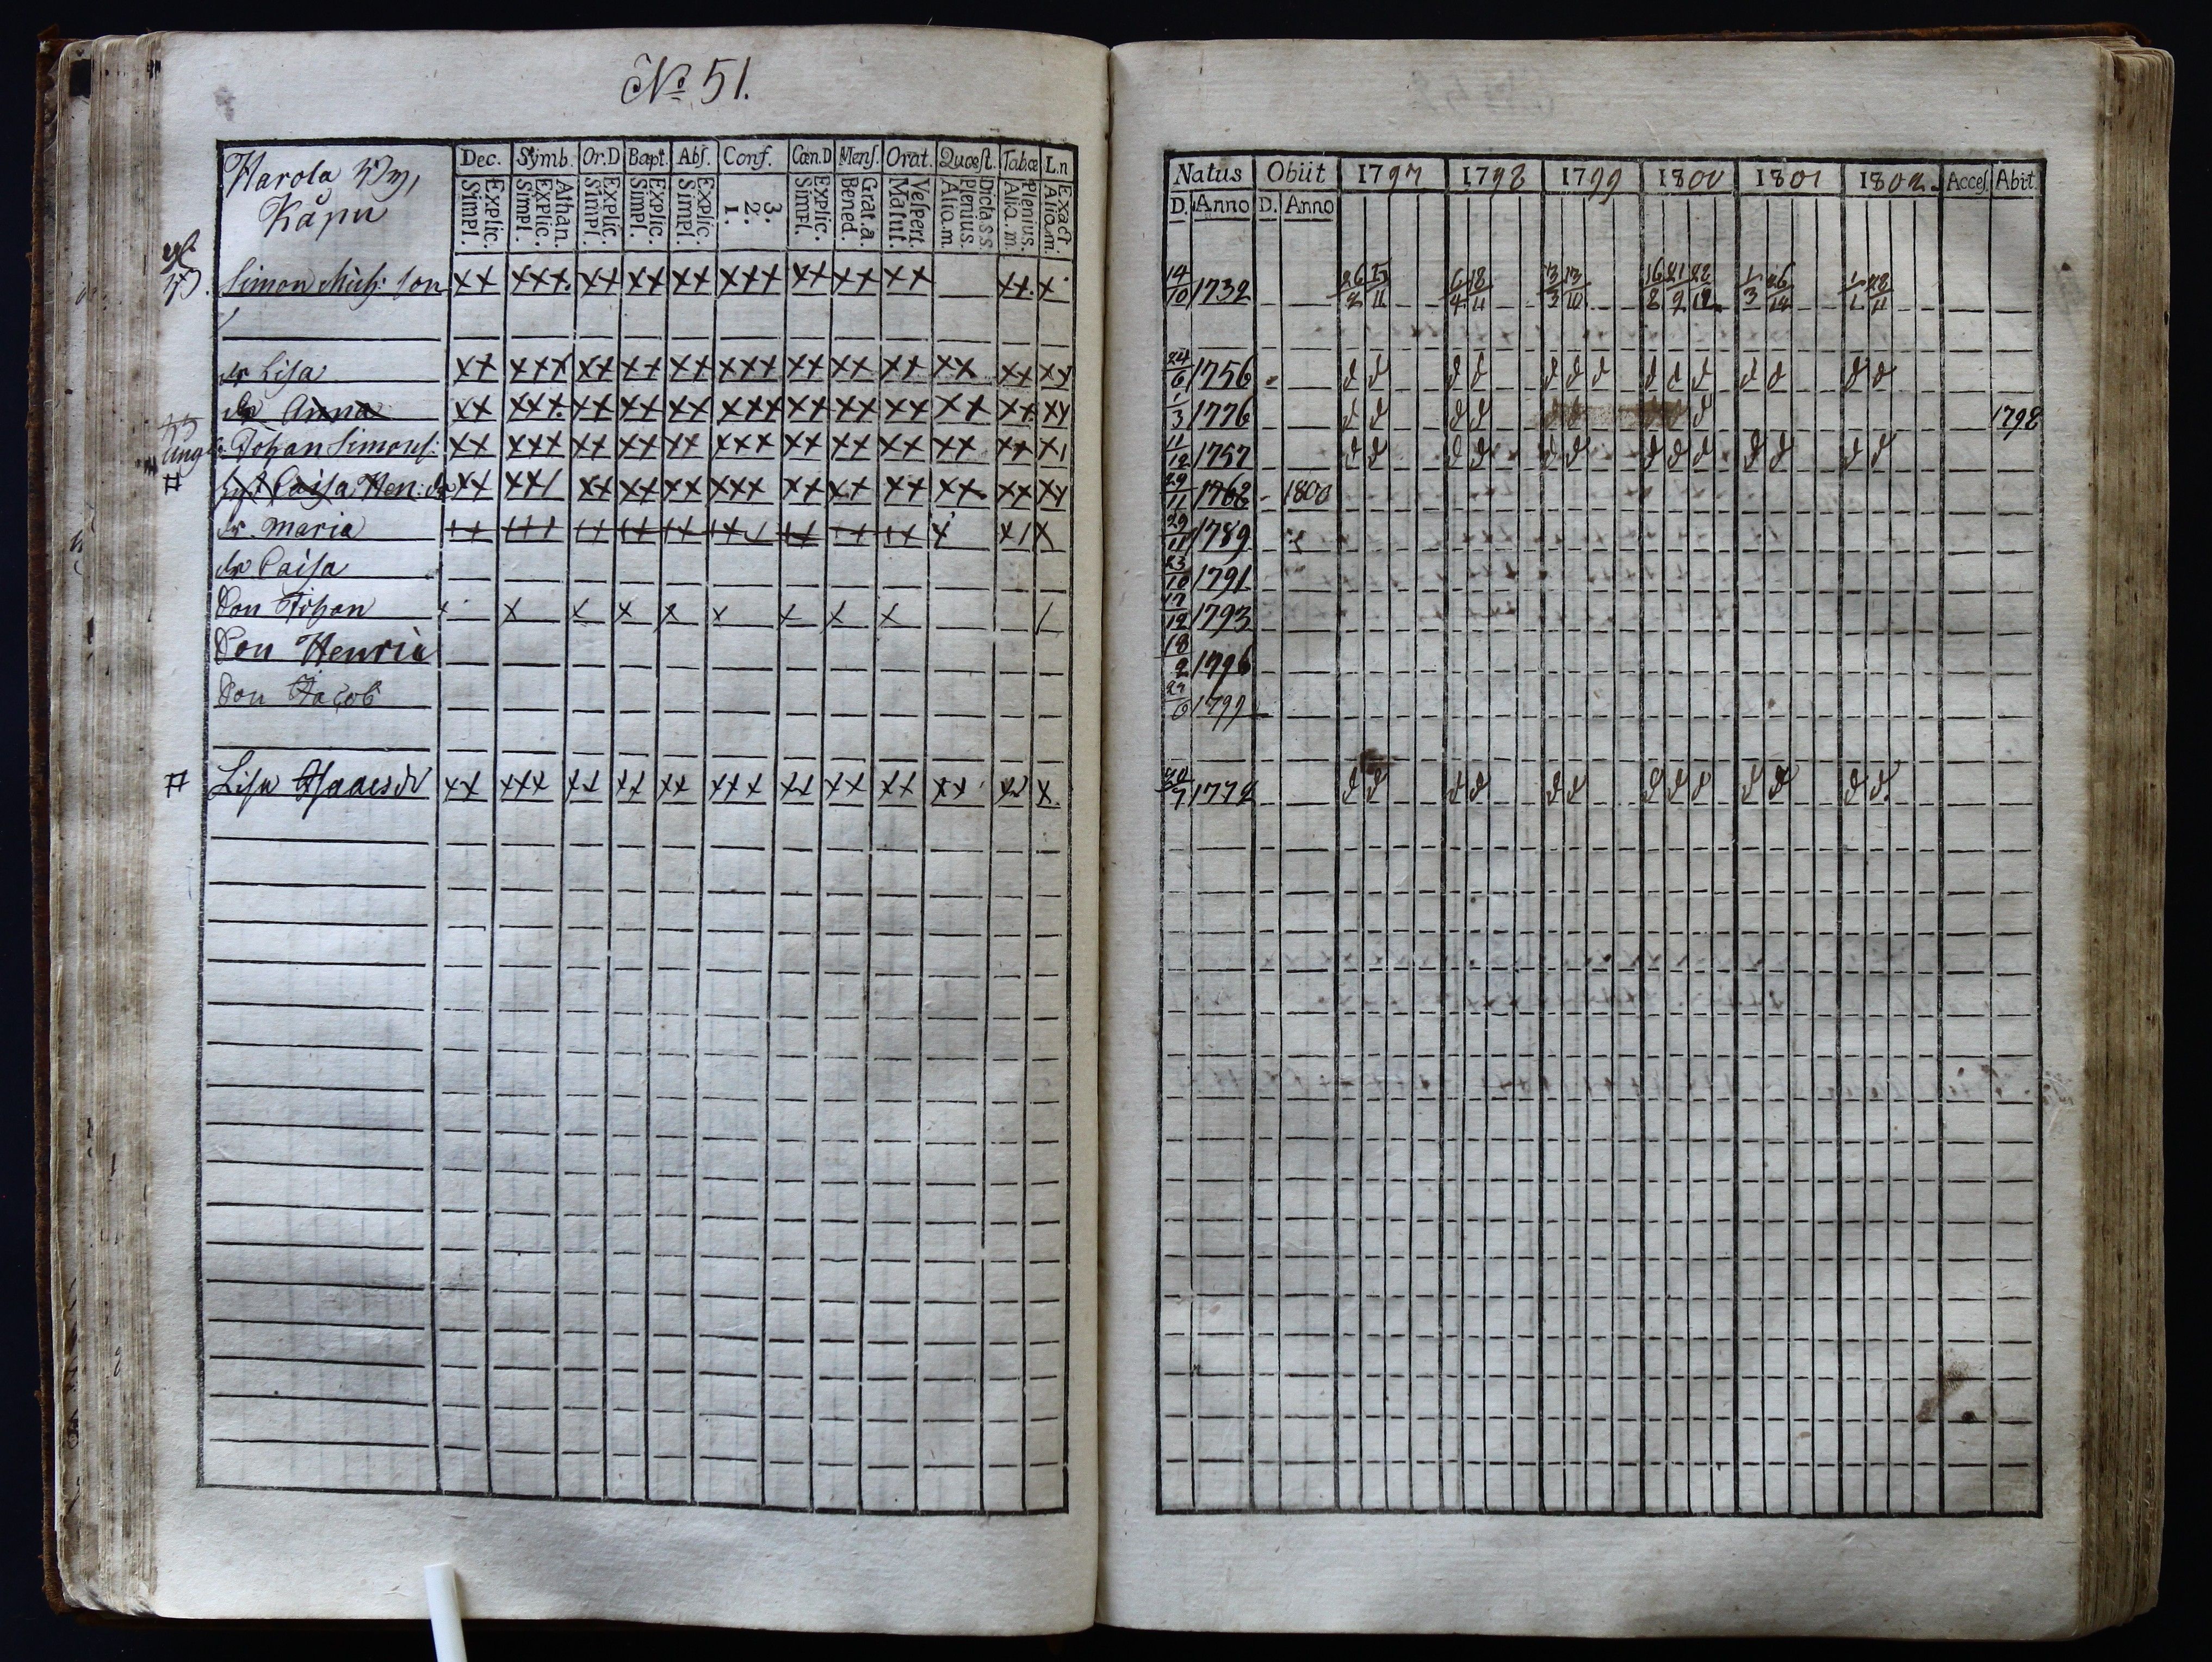 No 51.
Harola By,
Kåpu
Dec. Symb. Or.D Bapt. Abſ. Conf. Cœn.D Menſ. Orat. Quæſt. Tabœ L.n
Explic. Simpl. Athan. Explic. Simpl. Explic. Simpl. Explic. Simpl. Explic. Simpl. 3. 2. 1. Explic. Simpl. Grat.a. Bened. Veſpert. Matut. Dicta s.s. Plenius. Alio.m. Plenius. Alio.m. Exact Alio.m.
Natus Obiit 1797 1798 1799 1800 1801 1802. Acceſ. Abit.
D. Anno D. Anno
Simon Mich: son xx xxx xx xx xx xxx xx xx xx xx x 14/10 1732 26/2 6/4 18/11 3/3 13/10 1/3 28/11
dr Lisa xx xxx xx xx xx xxx xx xx xx xx xx xy 24/6 1756 d d d d d d d d d d d d d d
dr Anna xx xxx xx xx xx xxx xx xx xx xx xx xy 1/3 1776 d d d d 1798
Johan Simons: xx xxx xx xx xx xxx xx xx xx xx xx x1 11/12 1757 d d d d d d d d d d d d d
# Hust Caisa Hen: dr xx xx/ xx xx xx xxx xx xx xx xx xx xy 29/11 1768 1800
dr Maria 29/11 1789
dr Caisa 23/10 1791
Son Johan x x x x x x x x x / 17/12 1793
Son Henric 18/2 1796
Son Jacob 1799
# Lisa Isaacs dr xx xxx xx xx xx xxx xx xx xx xx xx x 1772 d d d d d d d d d d d d d